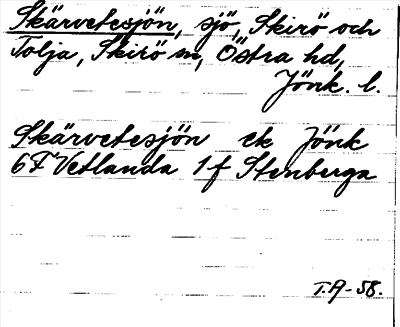 Skärvetesjön, sjö, Skirö och
Tolja, Skirö sn, Östra hd,
Jönk. l.
Skärvetesjön ek Jönk
6F Vetlanda 1 f Stenberga
T.A-58.